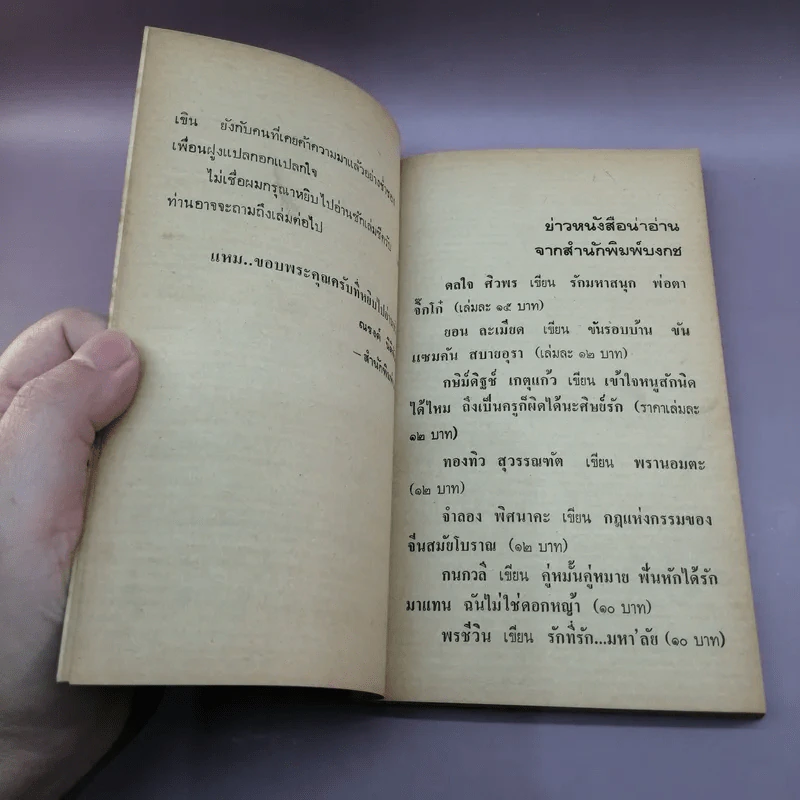 เขิน ยังกับคนที่เคยค้าความมาแล้วอย่างช่ำชอง
เพื่อนฝูงแปลกอกแปลกใจ
ไม่เชื่อผมกรุณาหยิบไปอ่านซักเล่มซีครับ
ท่านอาจจะถามถึงเล่มต่อไป
แหม..ขอบพระคุณครับที่หยิบไป
ณรงค์
—สำนักพิมพ์
ข่าวหนังสือน่าอ่าน
จากสำนักพิมพ์บงกช
ดลใจ ศิวพร เขียน รักมหาสนุก พ่อตา
จิ๊กโก๋ (เล่มละ ๑๕ บาท)
ยอน ละเมียด เขียน ขันรอบบ้าน ขัน
แซมคัน สบายอุรา (เล่มละ ๑๒ บาท)
กษิม์ดิฐช์ เกตุแก้ว เขียน เข้าใจหนูสักนิด
ได้ไหม ถึงเป็นครูก็ผิดได้นะศิษย์รัก (ราคาเล่มละ
๑๒ บาท)
ทองทิว สุวรรณทัต เขียน พรานอมตะ
(๑๒ บาท)
จำลอง พิศนาคะ เขียน กฎแห่งกรรมของ
จีนสมัยโบราณ (๑๒ บาท)
กนกวลี เขียน คู่หมั้นคู่หมาย ฟันหักได้รัก
มาแทน ฉันไม่ใช่ดอกหญ้า (๑๐ บาท)
พรชีวิน เขียน รักที่รัก...มหา'ลัย (๑๐ บาท)